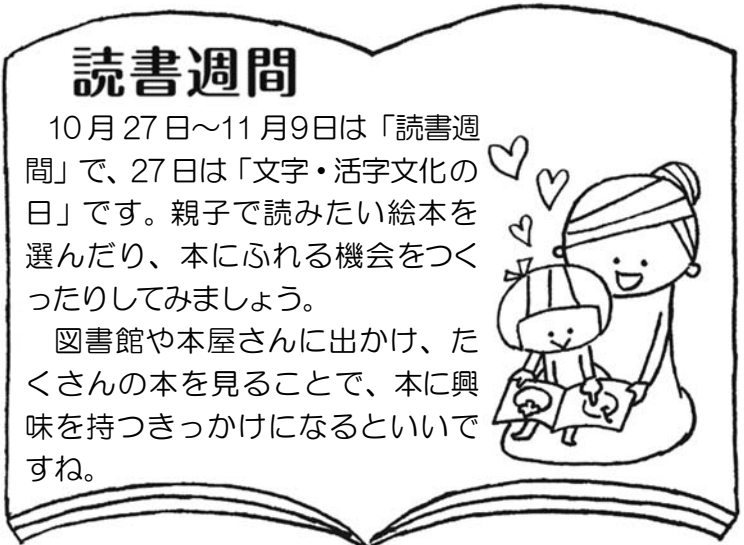 読書週間
　10月27日～11月9日は「読書週
間」で、27日は「文字・活字文化の
日」です。親子で読みたい絵本を
選んだり、本にふれる機会をつく
ったりしてみましょう。
　図書館や本屋さんに出かけ、た
くさんの本を見ることで、本に興
味を持つきっかけになるといいで
すね。